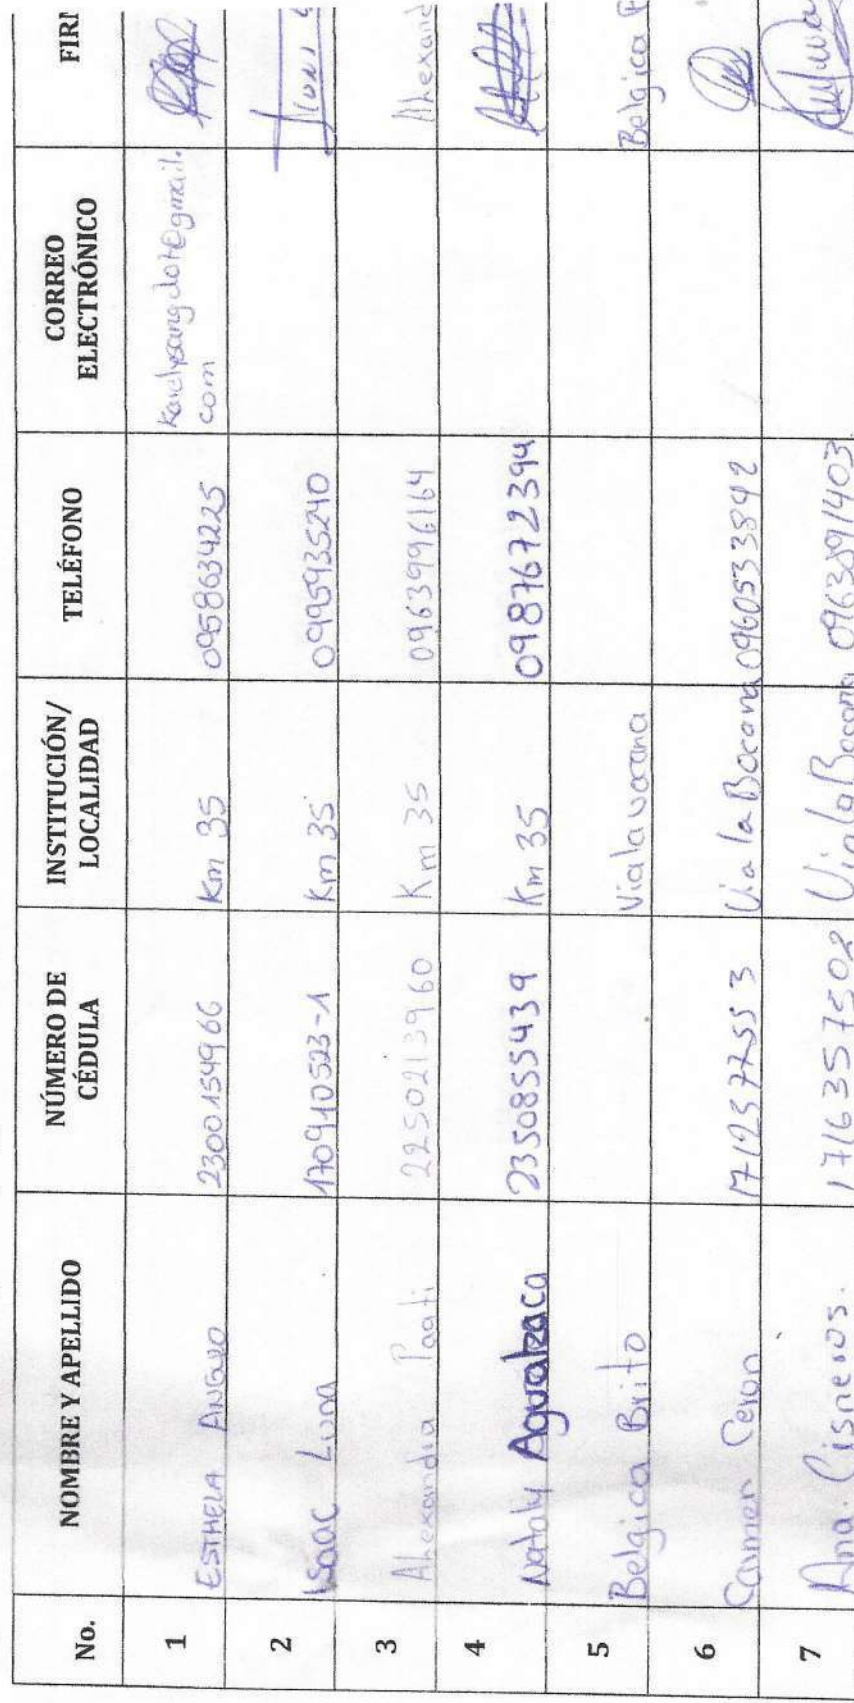 No. NOMBRE Y APELLIDO NÚMERO DE CÉDULA INSTITUCIÓN/ LOCALIDAD TELÉFONO CORREO ELECTRÓNICO FIRM
1 ESTHELA ANGULO 2300154966 Km 35 0958634225
com
2 Isaac Luna 170910523-1 Km 35 0995935240
3 Alhexandra 2250213960 Km 35 0963996164 Alhexand
4 Nataly Agualzaca 2350855439 Km 35 0987672394
5 Belgica Brito Vialavocana Belgica
6 Carmen Ceron 1712577553 Via la Bocana 0960533842
7 Ana. Cisneros. 1716357502 Via la Bocana 0963891403